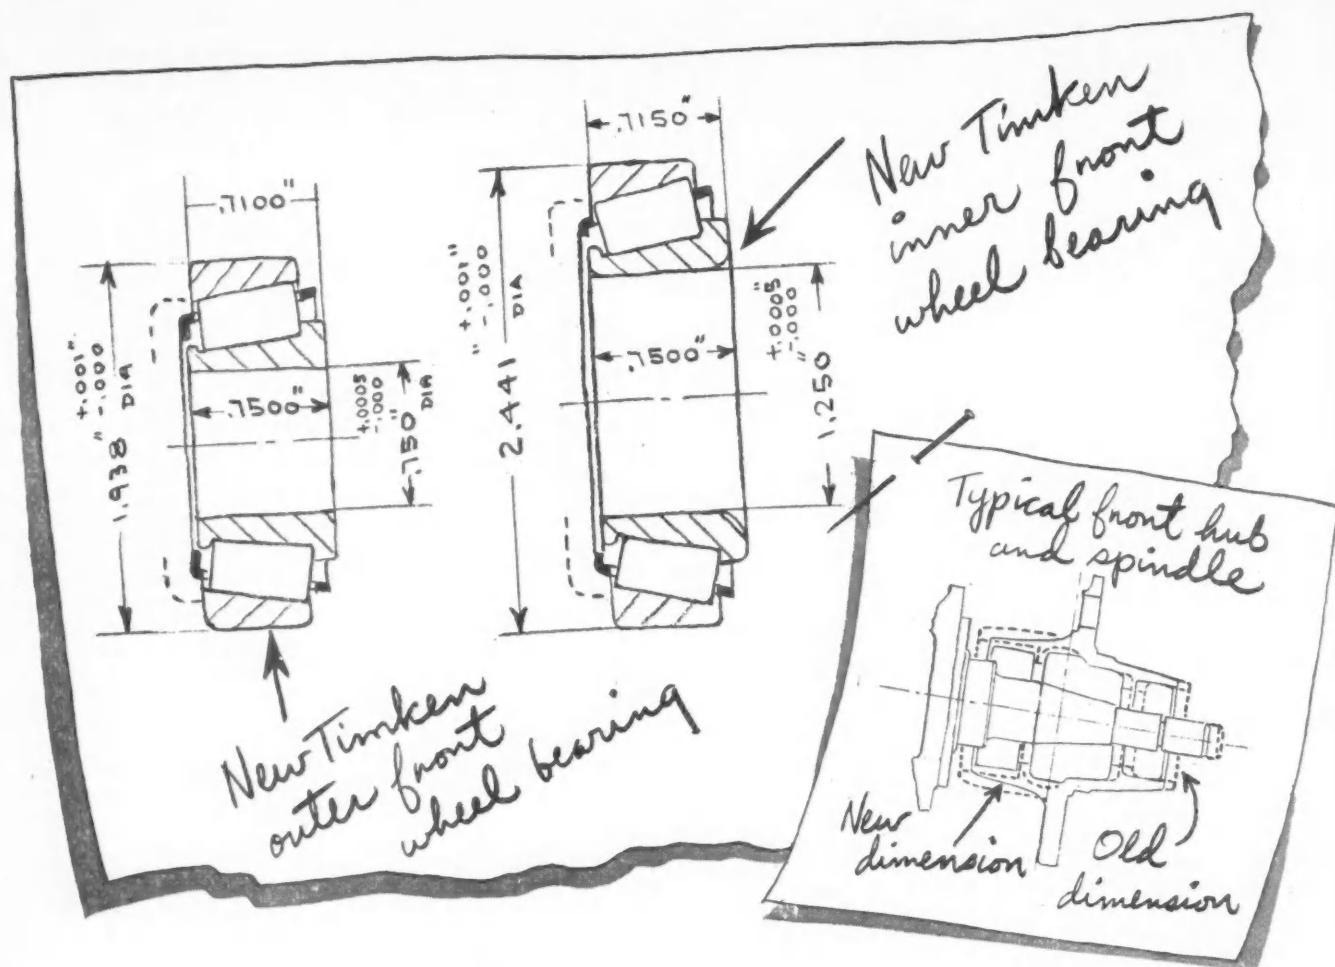 .7100"
1.938" +.001" -.000 DIA
.7500"
.750" +.0005 -.000 DIA
New Timken
outer front
wheel bearing
.7150"
2.441" +.001" -.000 DIA
.7500"
1.250" +.0005 -.000
New Timken
inner front
wheel bearing
Typical front hub
and spindle
New
dimension
Old
dimension